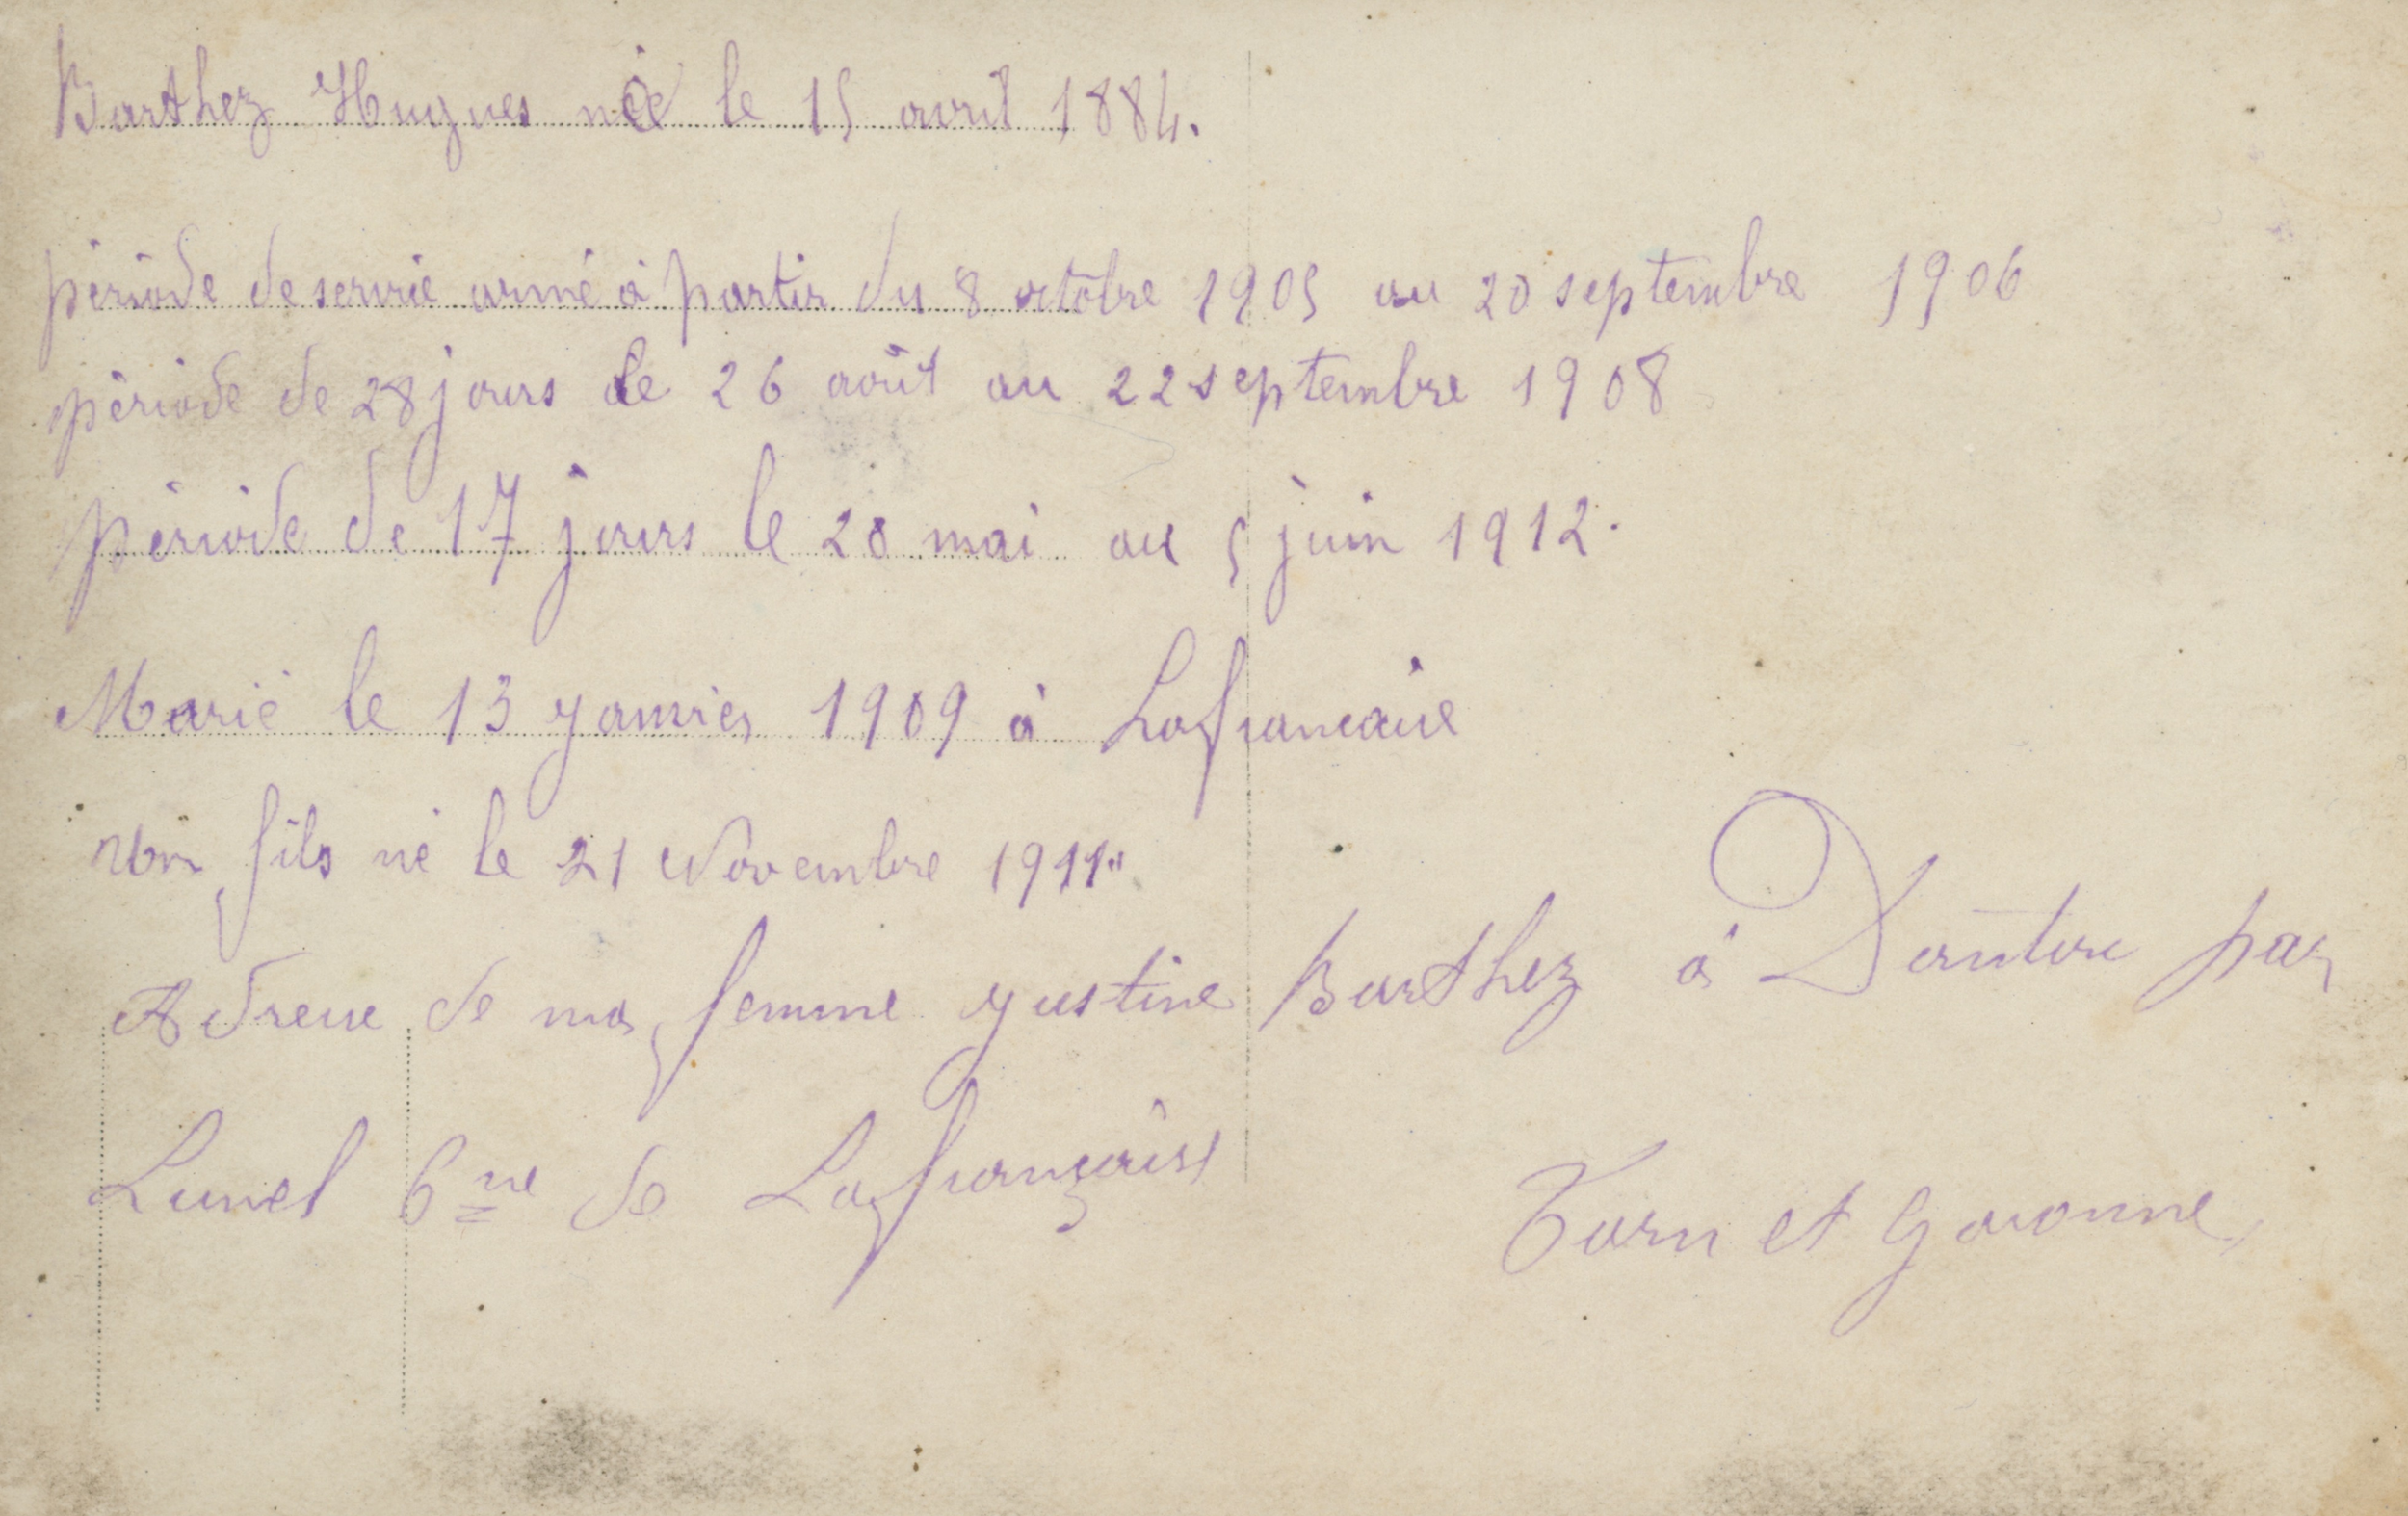 Barthez Hugues née le 15 avril 1884.
période de servie armé à partir du 8 octobre 1905 au 20 septembre 1906
période de 28 jours le 26 août au 22 septembre 1908
période de 17 jours le 20 mai au 5 juin 1912.
Marié le 13 Janvier 1909 à Lafrancaise
mon fils né le 21 Novembre 1911"
Adresse de ma femme Justine Barthez à par
Lunel Cne de Lafrançaise Tarn et Garonne